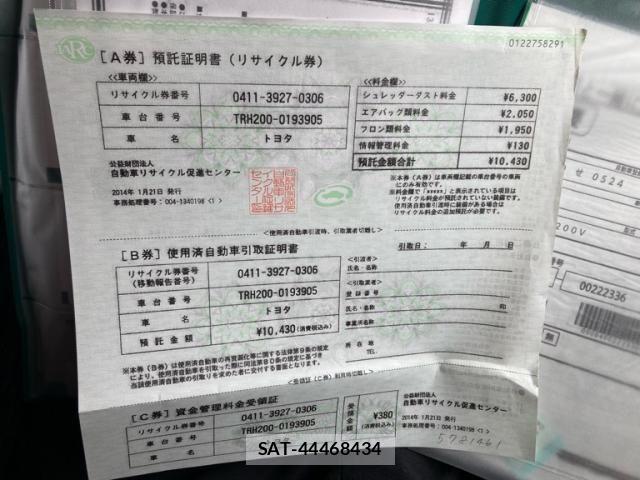 JARC
0122758291
[A券] 預託証明書 (リサイクル券)
<<車両欄>>
リサイクル券番号 0411-3927-0306
車台番号 TRH200-0193905
車名 トヨタ
<<料金欄>>
シュレッダーダスト料金 ¥6,300
エアバッグ類料金 ¥2,050
フロン類料金 ¥1,950
情報管理料金 ¥130
預託金額合計 ¥10,430
公益財団法人
自動車リサイクル促進センター
2014年 1月21日 発行
事務処理番号:004-1340198 <1>
※本券(A券)は車両欄記載の車台番号の車両
にのみ有効です。
※料金欄で「*****」と表示されている項目は
リサイクル料金が預託されていない装備です。
使用済自動車引渡時に装備がある場合は
リサイクル料金の追加預託が必要です。
<使用済自動車引渡時、引取業者切離し>
[B券] 使用済自動車引取証明書
引取日: 年 月 日
リサイクル券番号
(移動報告番号) 0411-3927-0306
車台番号 TRH200-0193905
車名 トヨタ
預託金額 ¥10,430 (消費税込み)
<引渡者>
氏名・名称
<引取業者>
登録番号
氏名・名称 印
事業所名称
所在地
TEL
※本券(B券)は使用済自動車の再資源化等に関する法律第9条の規定に
より、使用済自動車を引取った際に同法第80条の規定に基づき
当該使用済自動車の引取りを求めた者に交付する書面となります。
<受領証(C券)利用時切離し>
[C券] 資金管理料金受領証
0411-3927-0306
車台番号 TRH200-0193905
車名 トヨタ
受領金額 ¥380
(消費税込み)
公益財団法人
自動車リサイクル促進センター
2014年 1月21日 発行
事務処理番号:004-1340198 <1>
5721461
せ 0524
200V
00022336
SAT-44468434